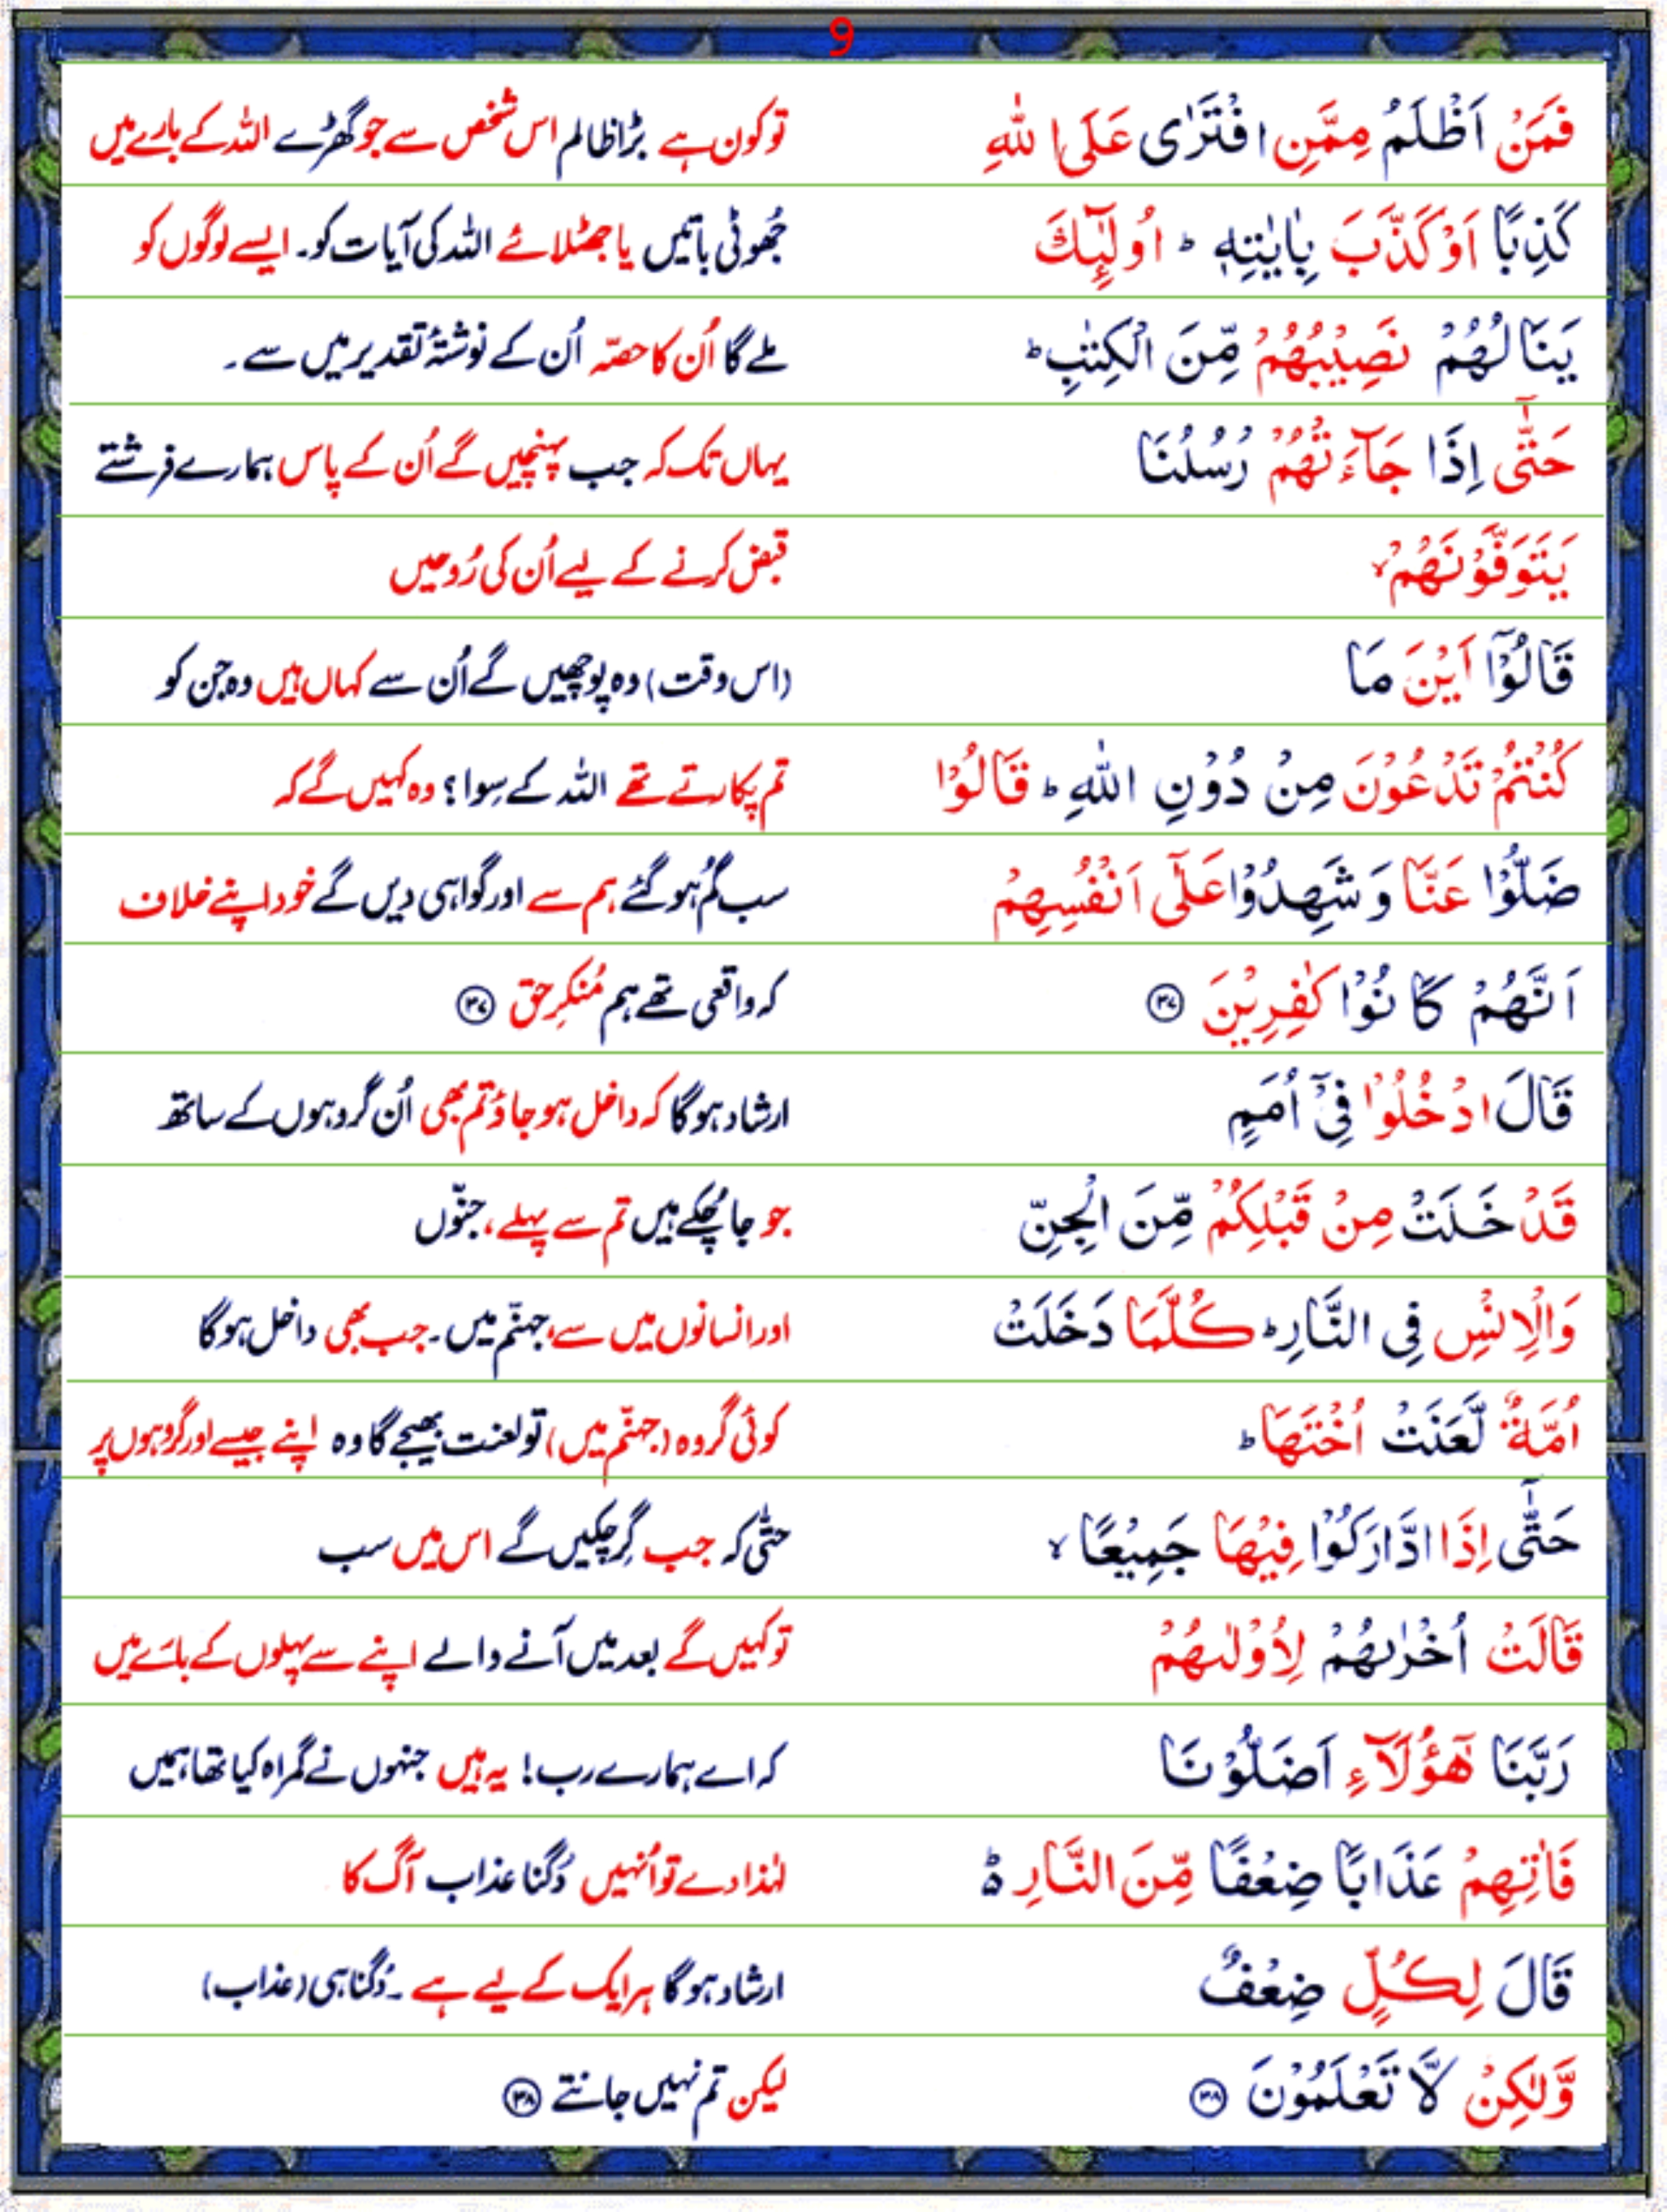 9
فَمَنْ اَظْلَمُ مِمَّنِ افْتَرٰى عَلَى اللّٰهِ توکون ہے بڑا ظالم اس شخص سے جو گھڑے اللہ کے بارے میں
كَذِبًا اَوْ كَذَّبَ بِاٰيٰتِهٖ ؕ اُولٰٓئِكَ جُھوٹی باتیں یا جھٹلائے اللہ کی آیات کو۔ ایسے لوگوں کو
يَنَالُهُمْ نَصِيْبُهُمْ مِّنَ الْكِتٰبِ ؕ ملے گا اُن کا حصّہ اُن کے نوشتۂ تقدیر میں سے ۔
حَتّٰٓى اِذَا جَآءَتْهُمْ رُسُلُنَا یہاں تک کہ جب پہنچیں گے اُن کے پاس ہمارے فرشتے
يَتَوَفَّوْنَهُمْ ۙ قبض کرنے کے لیے اُن کی رُوحیں
قَالُوْٓا اَيْنَ مَا (اس وقت) وہ پوچھیں گے اُن سے کہاں ہیں وہ جن کو
كُنْتُمْ تَدْعُوْنَ مِنْ دُوْنِ اللّٰهِ ؕ قَالُوْا تم پکارتے تھے اللہ کے سِوا؟ وہ کہیں گے کہ
ضَلُّوْا عَنَّا وَ شَهِدُوْا عَلٰٓى اَنْفُسِهِمْ سب گُم ہوگئے ہم سے اور گواہی دیں گے خود اپنے خلاف
اَنَّهُمْ كَانُوْا كٰفِرِيْنَ ۳۷ کہ واقعی تھے ہم مُنکرِ حق ۳۷
قَالَ ادْخُلُوْا فِيْٓ اُمَمٍ ارشاد ہوگا کہ داخل ہو جاؤ تم بھی اُن گروہوں کے ساتھ
قَدْ خَلَتْ مِنْ قَبْلِكُمْ مِّنَ الْجِنِّ جو جا چُکے ہیں تم سے پہلے، جنّوں
وَالْاِنْسِ فِى النَّارِ ؕ كُلَّمَا دَخَلَتْ اور انسانوں میں سے، جہنّم میں۔ جب بھی داخل ہوگا
اُمَّةٌ لَّعَنَتْ اُخْتَهَا ؕ کوئی گروہ (جہنّم میں) تو لعنت بھیجے گا وہ اپنے جیسے اور گروہوں پر
حَتّٰٓى اِذَا ادَّارَكُوْا فِيْهَا جَمِيْعًا ۙ حتّٰی کہ جب گِرچکیں گے اس میں سب
قَالَتْ اُخْرٰىهُمْ لِاُوْلٰىهُمْ تو کہیں گے بعد میں آنے والے اپنے سے پہلوں کے بارے میں
رَبَّنَا هٰٓؤُلَآءِ اَضَلُّوْنَا کہ اے ہمارے رب! یہ ہیں جنہوں نے گمراہ کیا تھا ہمیں
فَاٰتِهِمْ عَذَابًا ضِعْفًا مِّنَ النَّارِ ؕ۬ لہٰذا دے تو اُنہیں دُگنا عذاب آگ کا
قَالَ لِكُلٍّ ضِعْفٌ ارشاد ہوگا ہر ایک کے لیے ہے ۔ دُگنا ہی (عذاب)
وَّلٰكِنْ لَّا تَعْلَمُوْنَ ۳۸ لیکن تم نہیں جانتے ۳۸